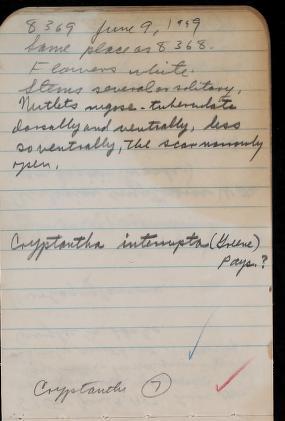 8369 June 9, 1949
Same place as 8368.
Flowers white.
Stems several or solitary.
Nutlets rugose-tuberculate
dorsally and ventrally, less
so ventrally, the scar narrowly
open.
Cryptantha interrupta (Greene)
Pays.?
Cryptantha 7